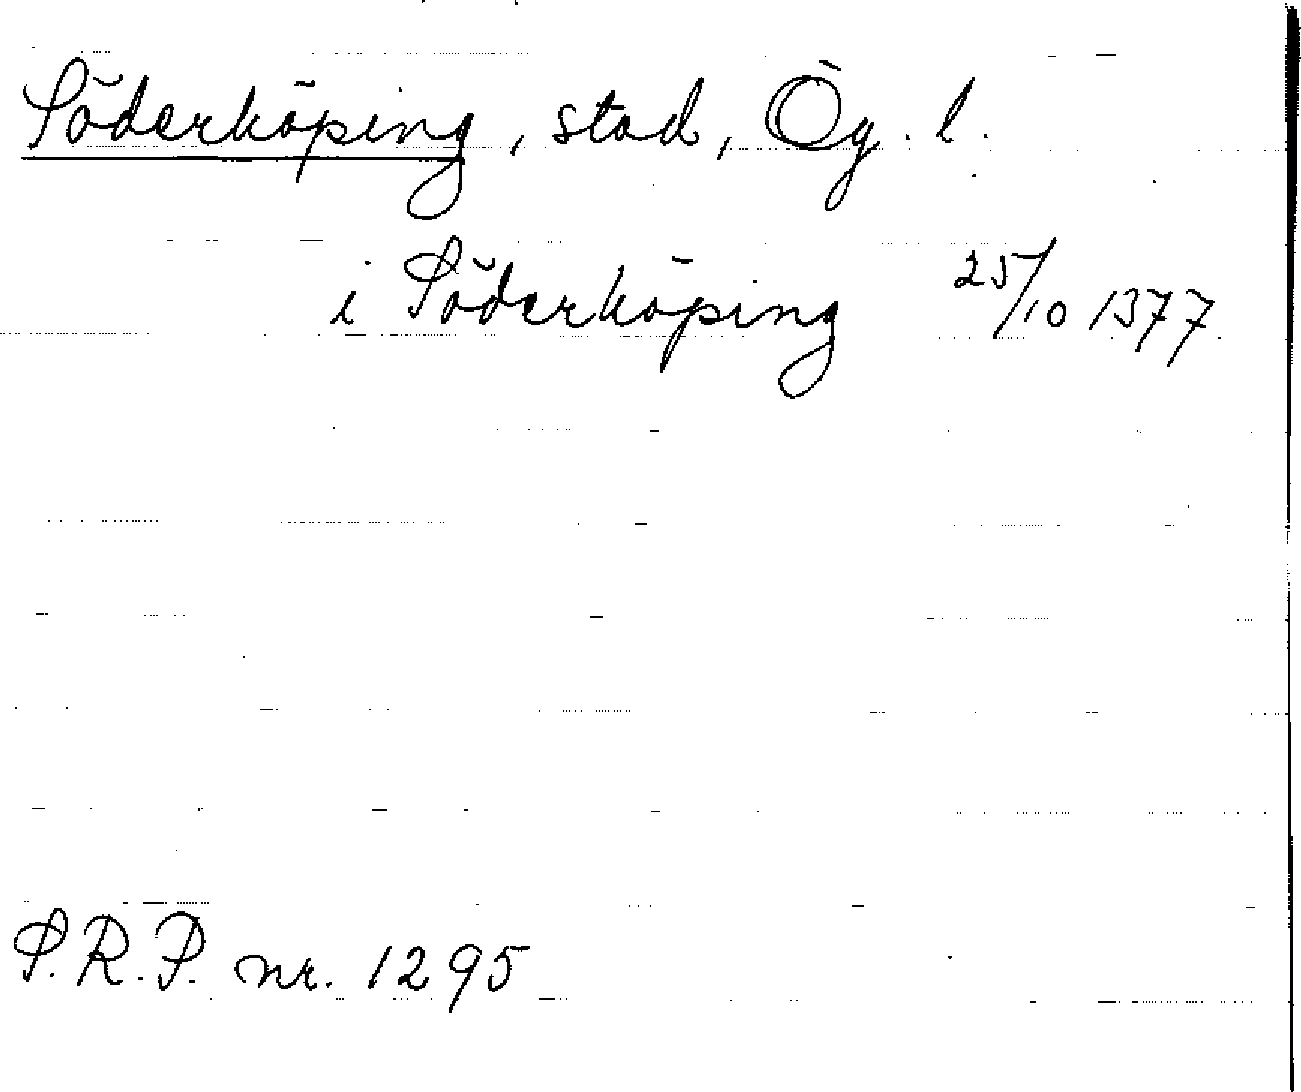 Söderköping, stad, Ög. l.
i Söderköping 25/10 1377
S.R.P. nr. 1295